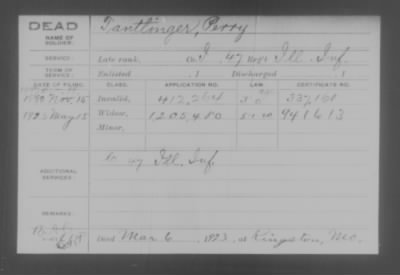 DEAD
NAME OF SOLDIER: Tantlinger, Perry
SERVICE: Late rank, Co. I, 47 Reg't Ill. Inf.
TERM OF SERVICE: Enlisted , 1 Discharged , 1
DATE OF FILING. CLASS. APPLICATION NO. LAW CERTIFICATE NO.
1890 Nov. 15 Invalid, 412,264 337,168
1923 May 15 Widow, 1205,480 948613
Minor,
ADDITIONAL SERVICES: 47 Ill. Inf.
REMARKS:
Died Mar 6, 1923, at Kingston, Mo.